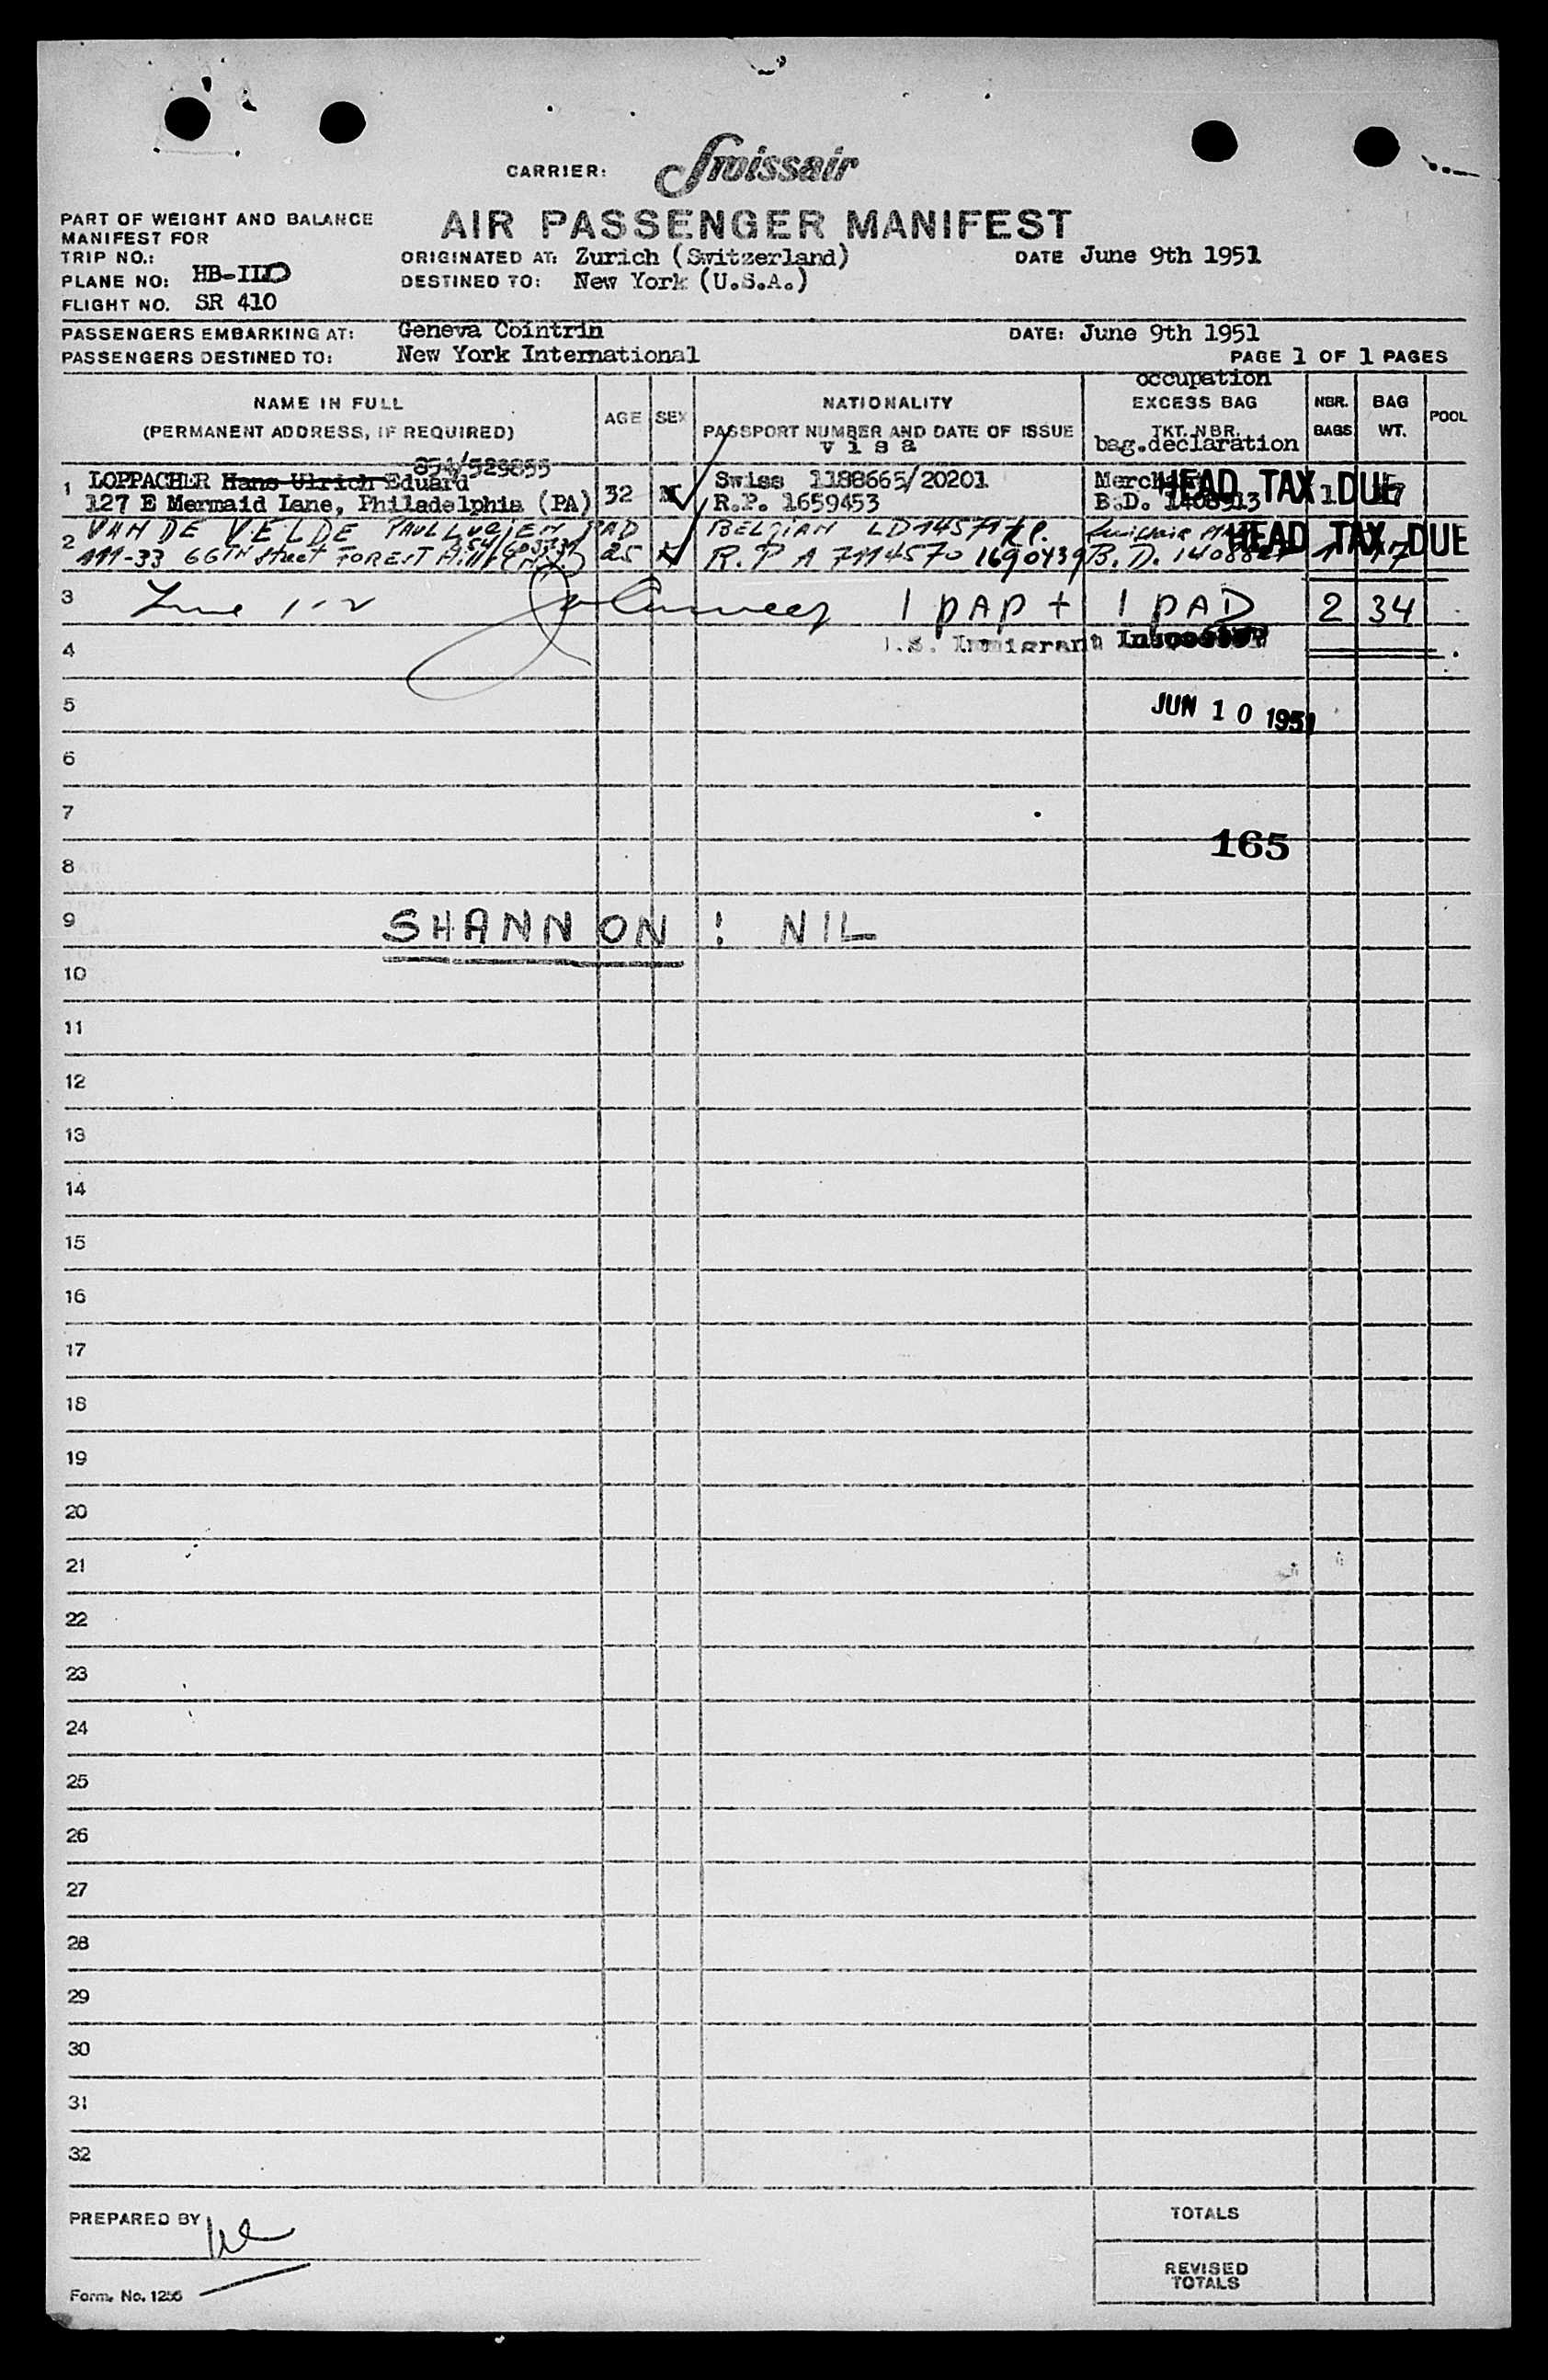 CARRIER: Swissair
PART OF WEIGHT AND BALANCE
AIR PASSENGER MANIFEST
MANIFEST FOR
TRIP NO.:
ORIGINATED AT: Zurich (Switzerland)
DATE June 9th 1951
PLANE NO: HB-III
DESTINED TO: New York (U.S.A.)
FLIGHT NO. SR 410
PASSENGERS EMBARKING AT: Geneva Cointrin
DATE: June 9th 1951
PASSENGERS DESTINED TO: New York International
PAGE 1 OF 1 PAGES
NAME IN FULL
(PERMANENT ADDRESS, IF REQUIRED)
AGE
SEX
NATIONALITY
PASSPORT NUMBER AND DATE OF ISSUE
visa
occupation
EXCESS BAG
TKT. NBR.
bag.declaration
NBR.
BAGS
BAG
WT.
POOL
854/529855
1 LOPPACHER Hans Ulrich Eduard 32 M Swiss 1188665/20201 Merchant HEAD TAX DUE 1 17
127 E Mermaid Lane, Philadelphia (PA) R.P. 1659453 B.D. 1408913
2 VAN DE VELDE PAUL PAD BELGIAN HEAD TAX DUE
111-33 66TH Street FOREST Hills 25 R.P A 7114570 1690439 B.D. 1 17
3 Line 1-2 1 PAP + 1 PAD 2 34
4 U.S. Immigrant Inspector
5 JUN 10 1951
6
7
165
8
9 SHANNON: NIL
10
11
12
13
14
15
16
17
18
19
20
21
22
23
24
25
26
27
28
29
30
31
32
PREPARED BY
TOTALS
REVISED
TOTALS
Form. No. 1256